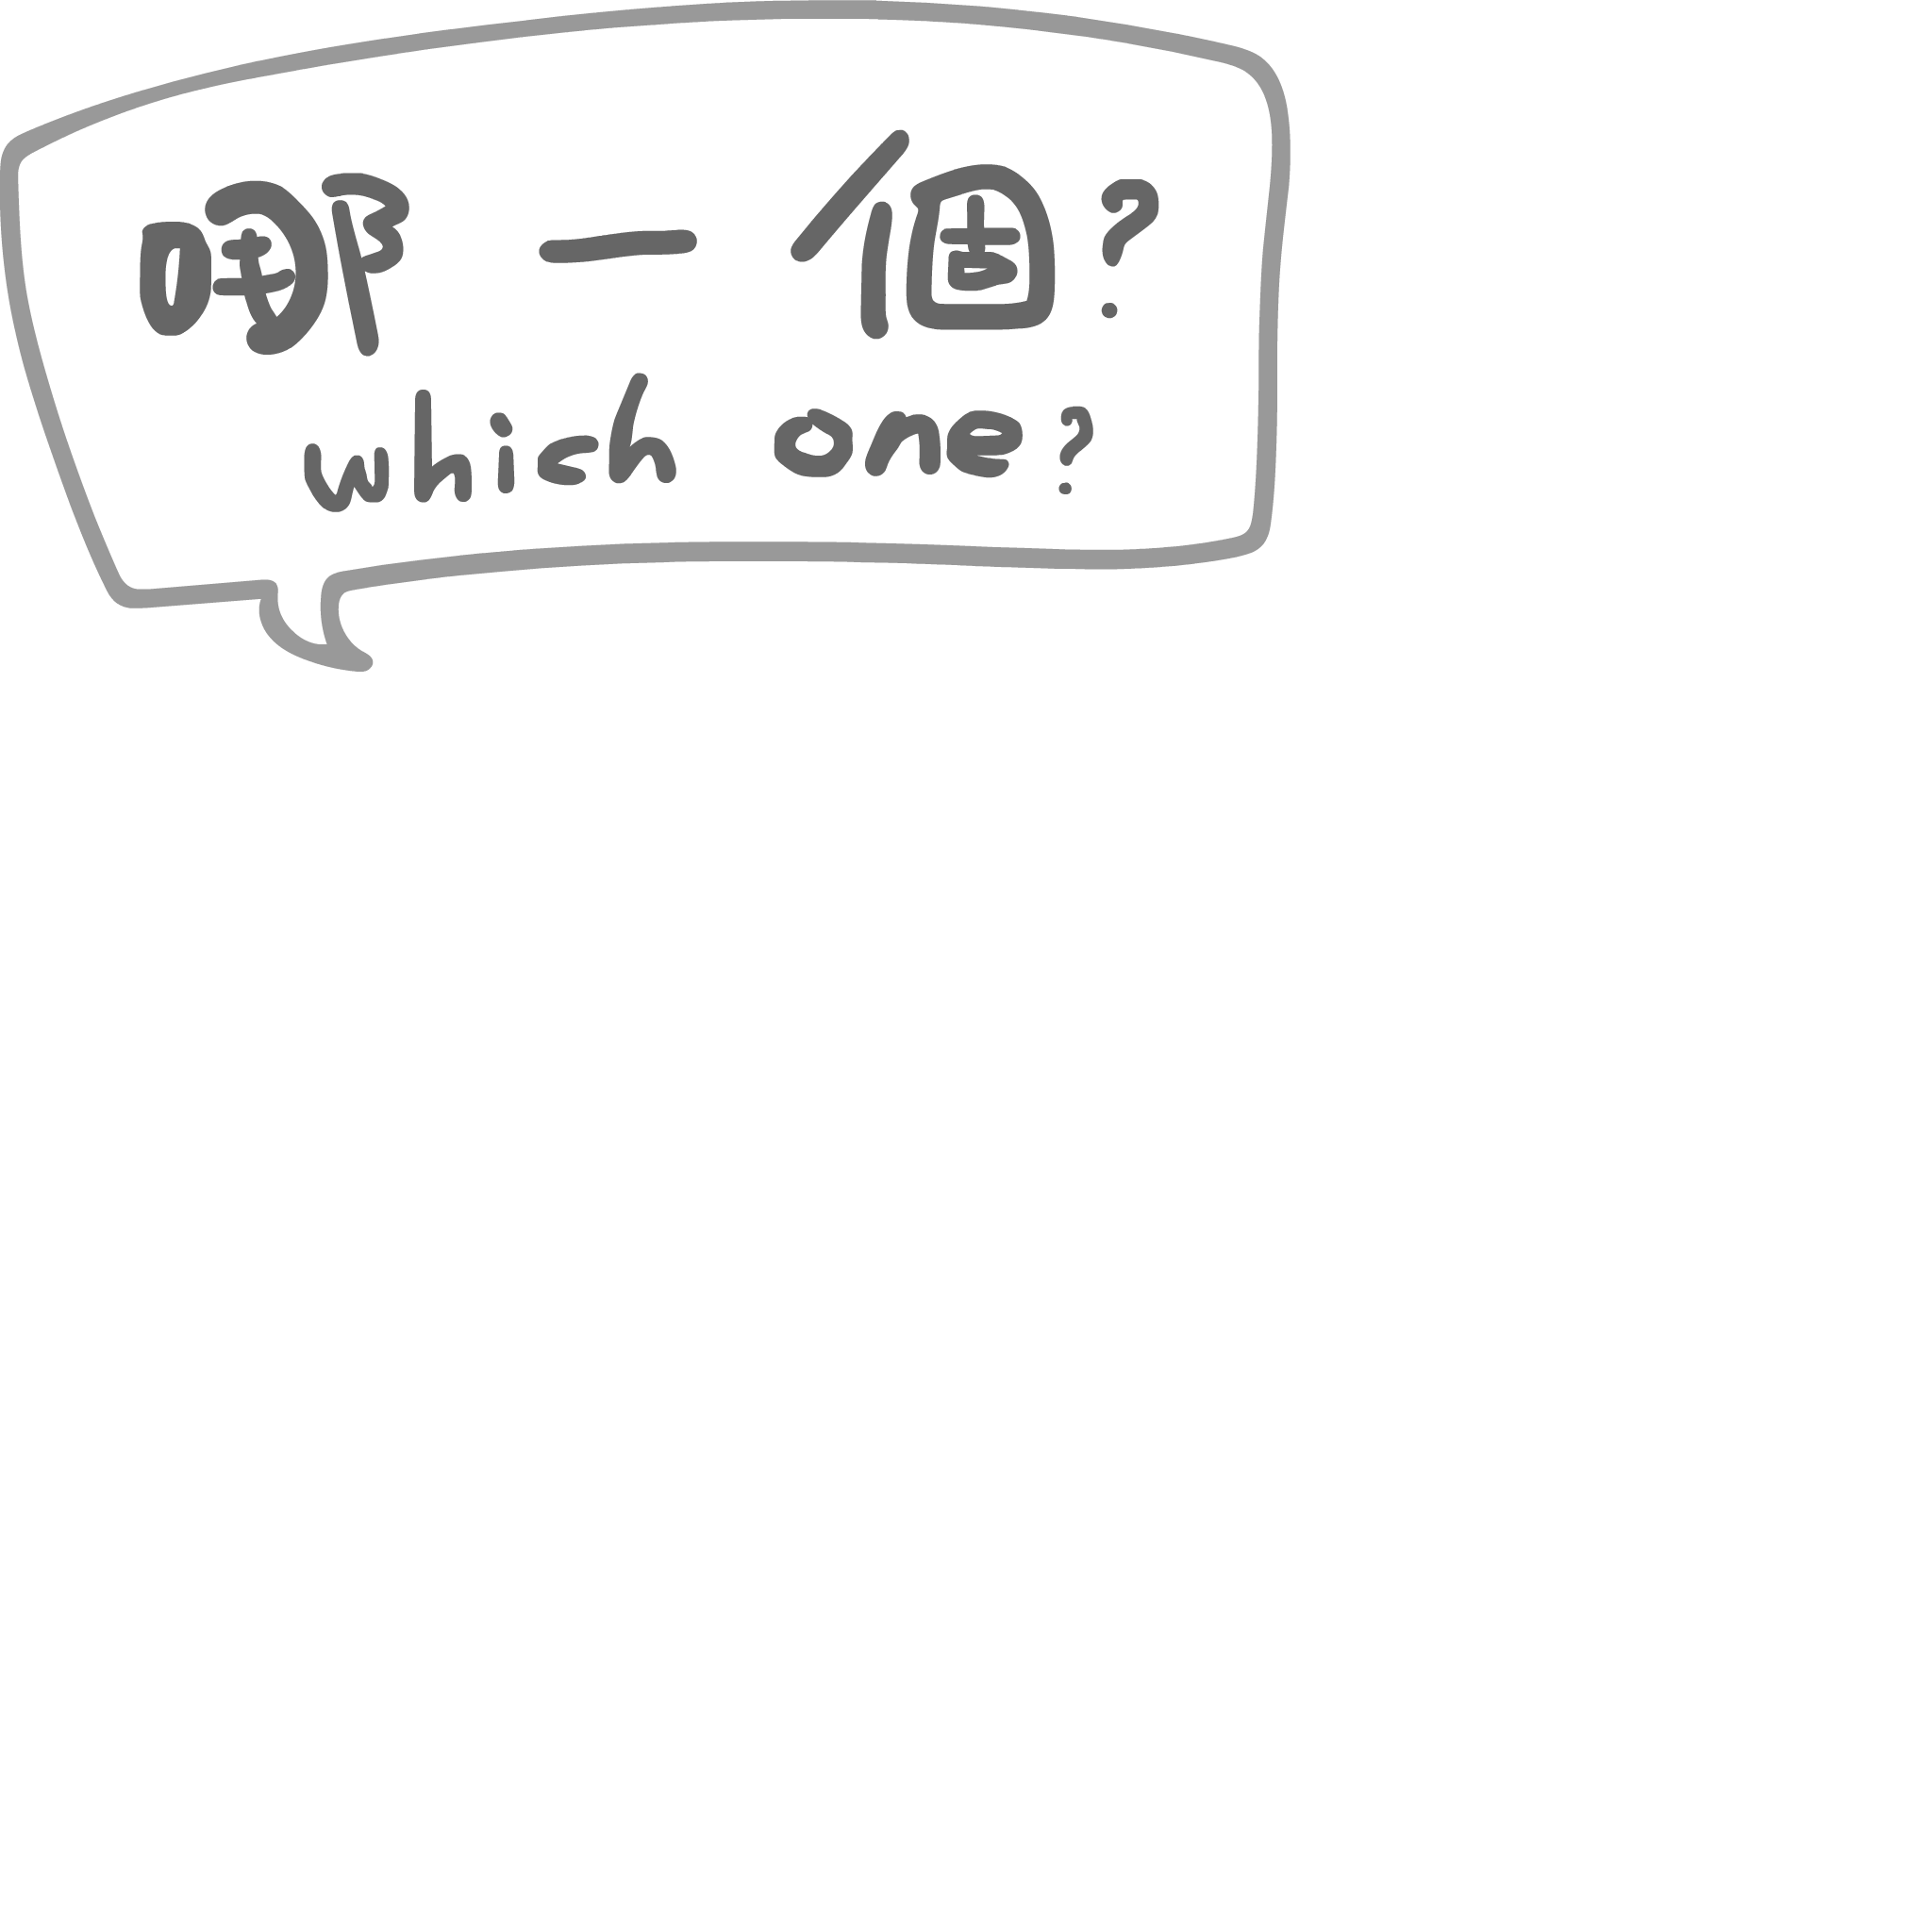 哪一個?
which one?